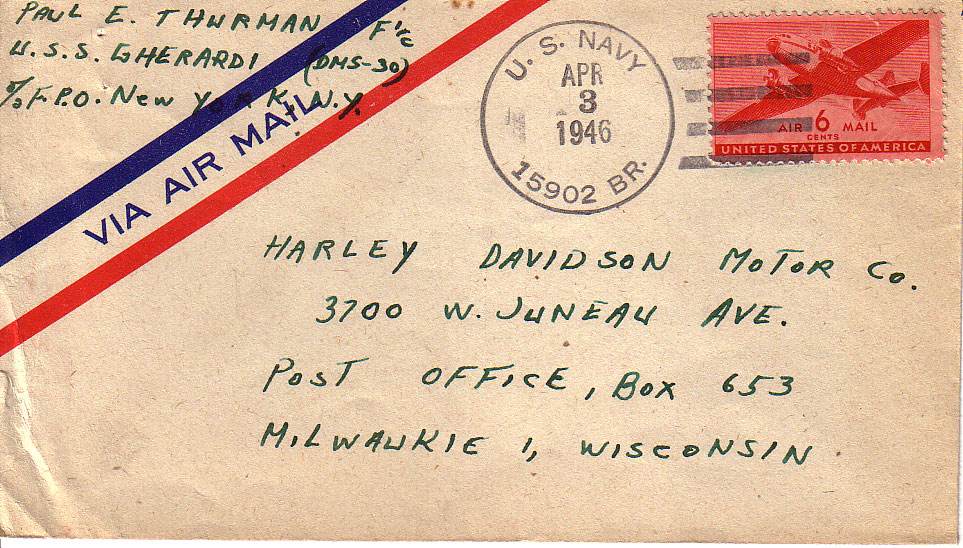 PAUL E. THURMAN F1/c
U.S.S. GHERARDI (DMS-30)
c/o F.P.O. New York, N.Y.
VIA AIR MAIL
U. S. NAVY
APR
3
1946
15902 BR.
AIR 6 MAIL
CENTS
UNITED STATES OF AMERICA
HARLEY DAVIDSON MOTOR Co.
3700 W. JUNEAU AVE.
POST OFFICE, BOX 653
MILWAUKIE 1, WISCONSIN